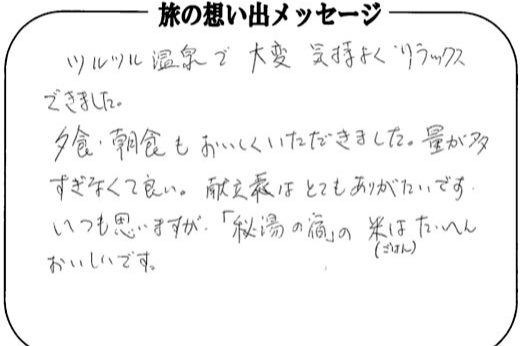 旅の想い出メッセージ
ツルツル温泉で 大変 気持よくリラックス
できました。
夕食・朝食もおいしくいただきました。量が多
すぎなくて良い。献立表はとてもありがたいです。
いつも思いますが、「秘湯の宿」の 米は たいへん
(ごはん)
おいしいです。